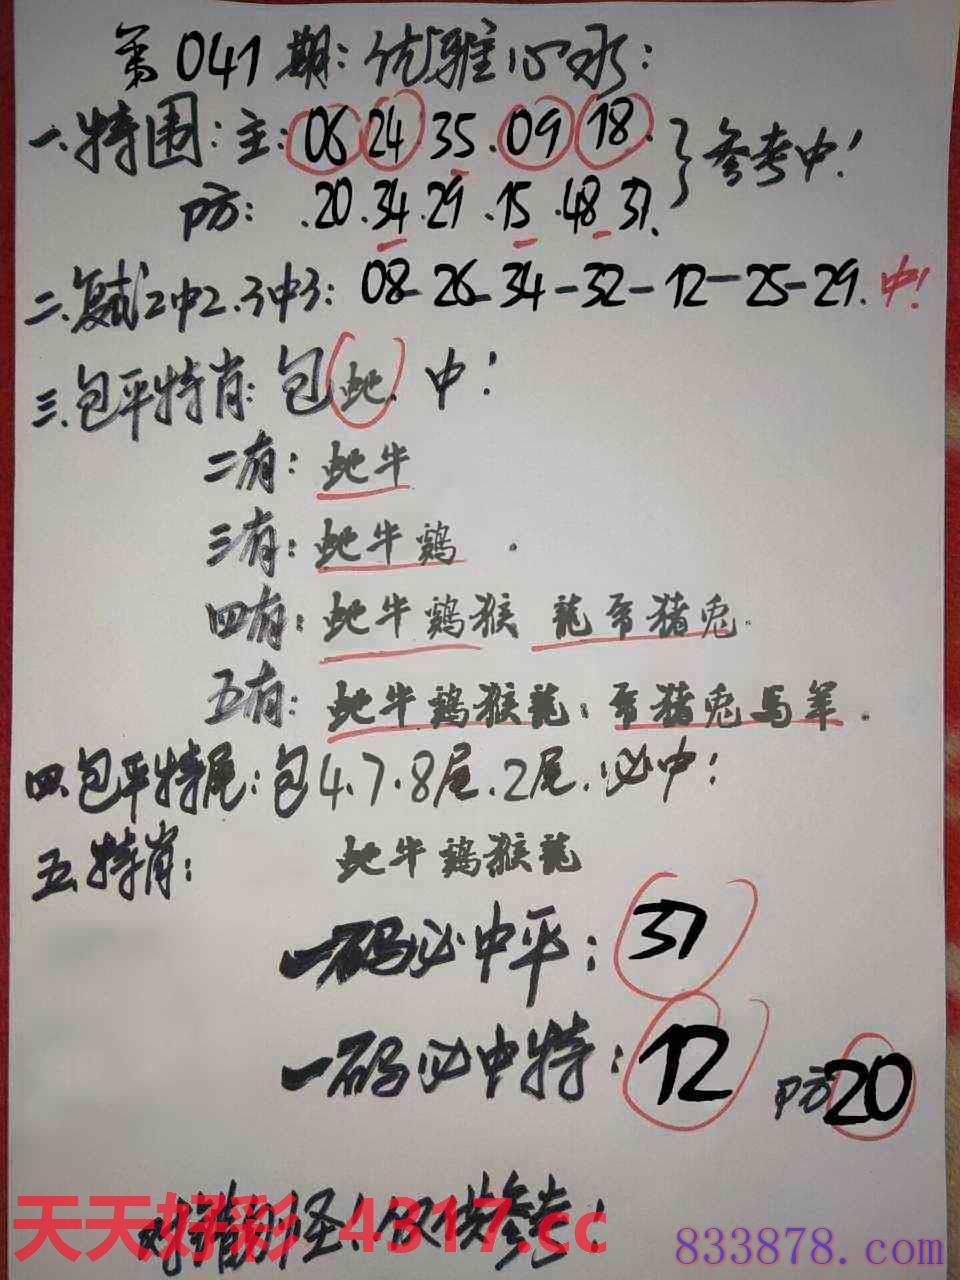 第041期:优雅心水:
一.特围:主:06 24.35.09 18. }参考中!
防: .20.34.29.15.48 37.
二.复试2中2.3中3: 08-26-34-32-12-25-29.中!
三.包平特肖:包蛇.中!
二有:蛇牛
三有:蛇牛鷄.
四有:蛇牛鷄猴 龍 猪兎.
五有:蛇牛鷄猴龍; 猪兎馬羊.
四.包平特尾:包4.7.8尾.2尾.必中!
五.特肖: 蛇牛鷄猴龍
一码必中平: 37
一码必中特: 12 防20
对错勿怪!仅供参考!
天天好彩 4317.cc
833878.com